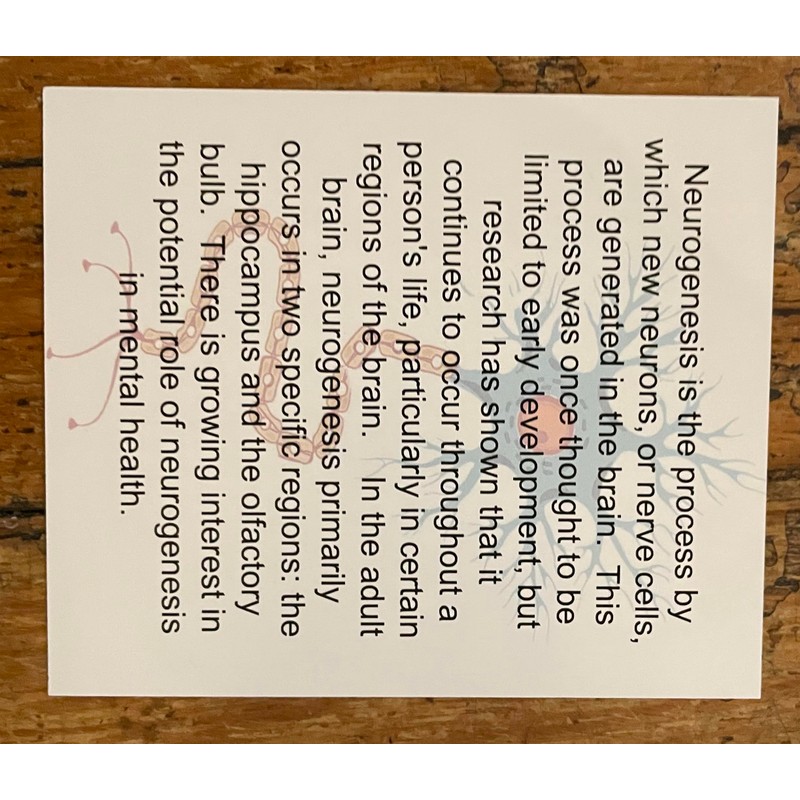 Neurogenesis is the process by
which new neurons, or nerve cells,
are generated in the brain.  This
process was once thought to be
limited to early development, but
research has shown that it
continues to occur throughout a
person's life, particularly in certain
regions of the brain.  In the adult
brain, neurogenesis primarily
occurs in two specific regions: the
hippocampus and the olfactory
bulb.  There is growing interest in
the potential role of neurogenesis
in mental health.